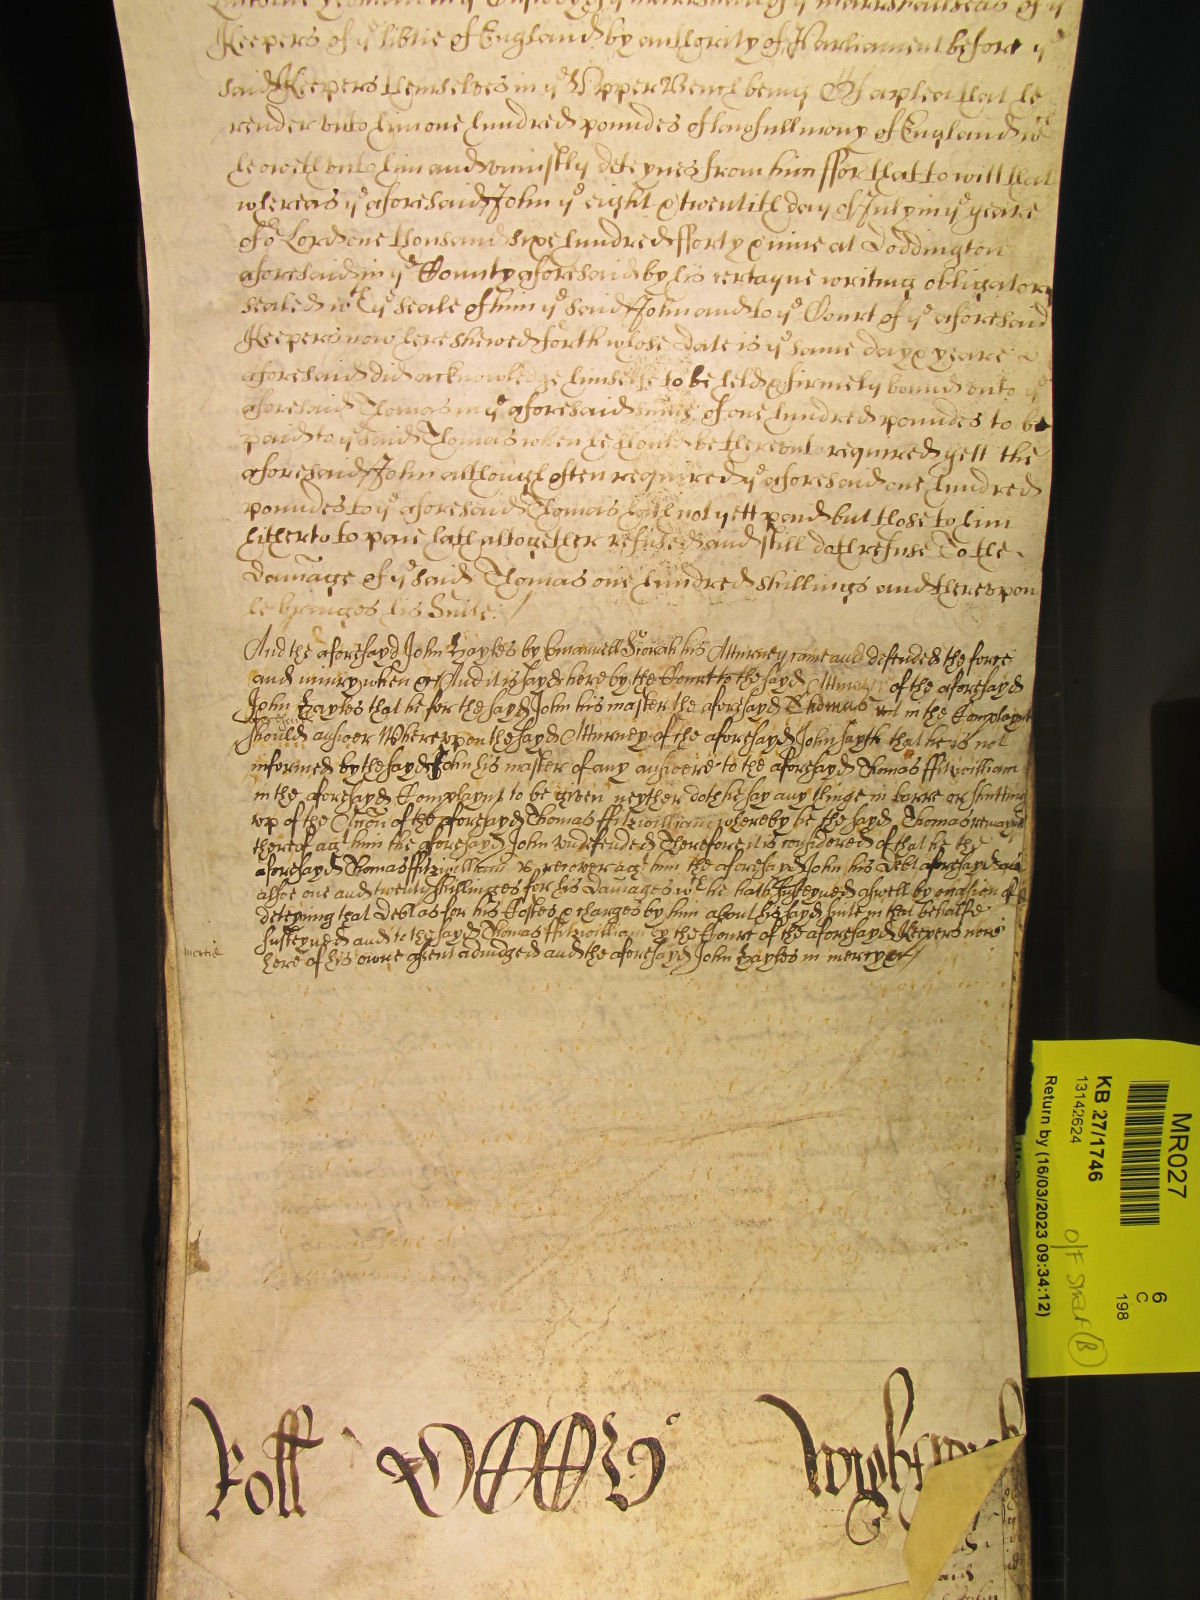 Keepers of ye libtie of England by authority of Parliament before ye
said Keepers themselves in ye Upper Bench being Of a plea that he
render unto him one hundred poundes of lawfull mony of England wch
he oweth unto him and uniustly deteynes from him ffor that to witt that
whereas ye aforesaid John ye eight & twentith day of July in ye yeare
of or Lord one thousand sixe hundred fforty & nine at Doddington
aforesaid in ye County aforesaid by his certayne writing obligatory
sealed wth ye seale of him ye said John and to ye Court of ye aforesaid
Keepers now here shewed forth whose date is ye same day & yeare
aforesaid did acknowledge himselfe to be held & firmely bound unto ye
aforesaid Thomas in ye aforesaid summe of one hundred poundes to be
paid to ye said Thomas when he should be thereunto required yett the
aforesaid John although often required ye aforesaid one hundred
poundes to ye aforesaid Thomas hath not yett paid but those to him
hitherto to paie hath altogether refused and still doth refuse To the
damage of ye said Thomas one hundred shillings and thereupon
he bringes his Suite /
And the aforesayd John by Emanuell his Atturney came and defended the force
and iniury when &c And it is sayd here by the Court to the sayd Atturney of the aforesayd
John that he for the sayd John his master the aforesayd Thomas in the Complaynt
aforesaid
should answer Whereupon the sayd Atturney of the aforesayd John sayth that he is not
informed by the sayd John his master of any answere to the aforesayd Thomas ffitzwilliam
in the aforesayd Complaynt to be given neyther doth he say any thinge in barre or shutting
up of the Accon of the aforesayd Thomas ffitzwilliam whereby he the sayd Thomas remaynes
thereof agt him the aforesayd John undefended Therefore it is considered of that he the
aforesayd Thomas ffitzwilliam do recover agt him the aforesayd John his Debt aforesayd and
alsoe one and twenty shillinges for his Damages wch he hath susteyned aswell by occasion of ye
deteyning that Debt as for his Costes & charges by him about his sayd suite in that behalfe
susteyned and to the sayd Thomas ffitzwilliam by the Court of the aforesayd Keepers now
here of his owne assent adiudged and the aforesayd John in mercy &c /
mercie
Roll
MR027
KB 27/1746
13142624
Return by (16/03/2023 09:34:12)
6
C
198